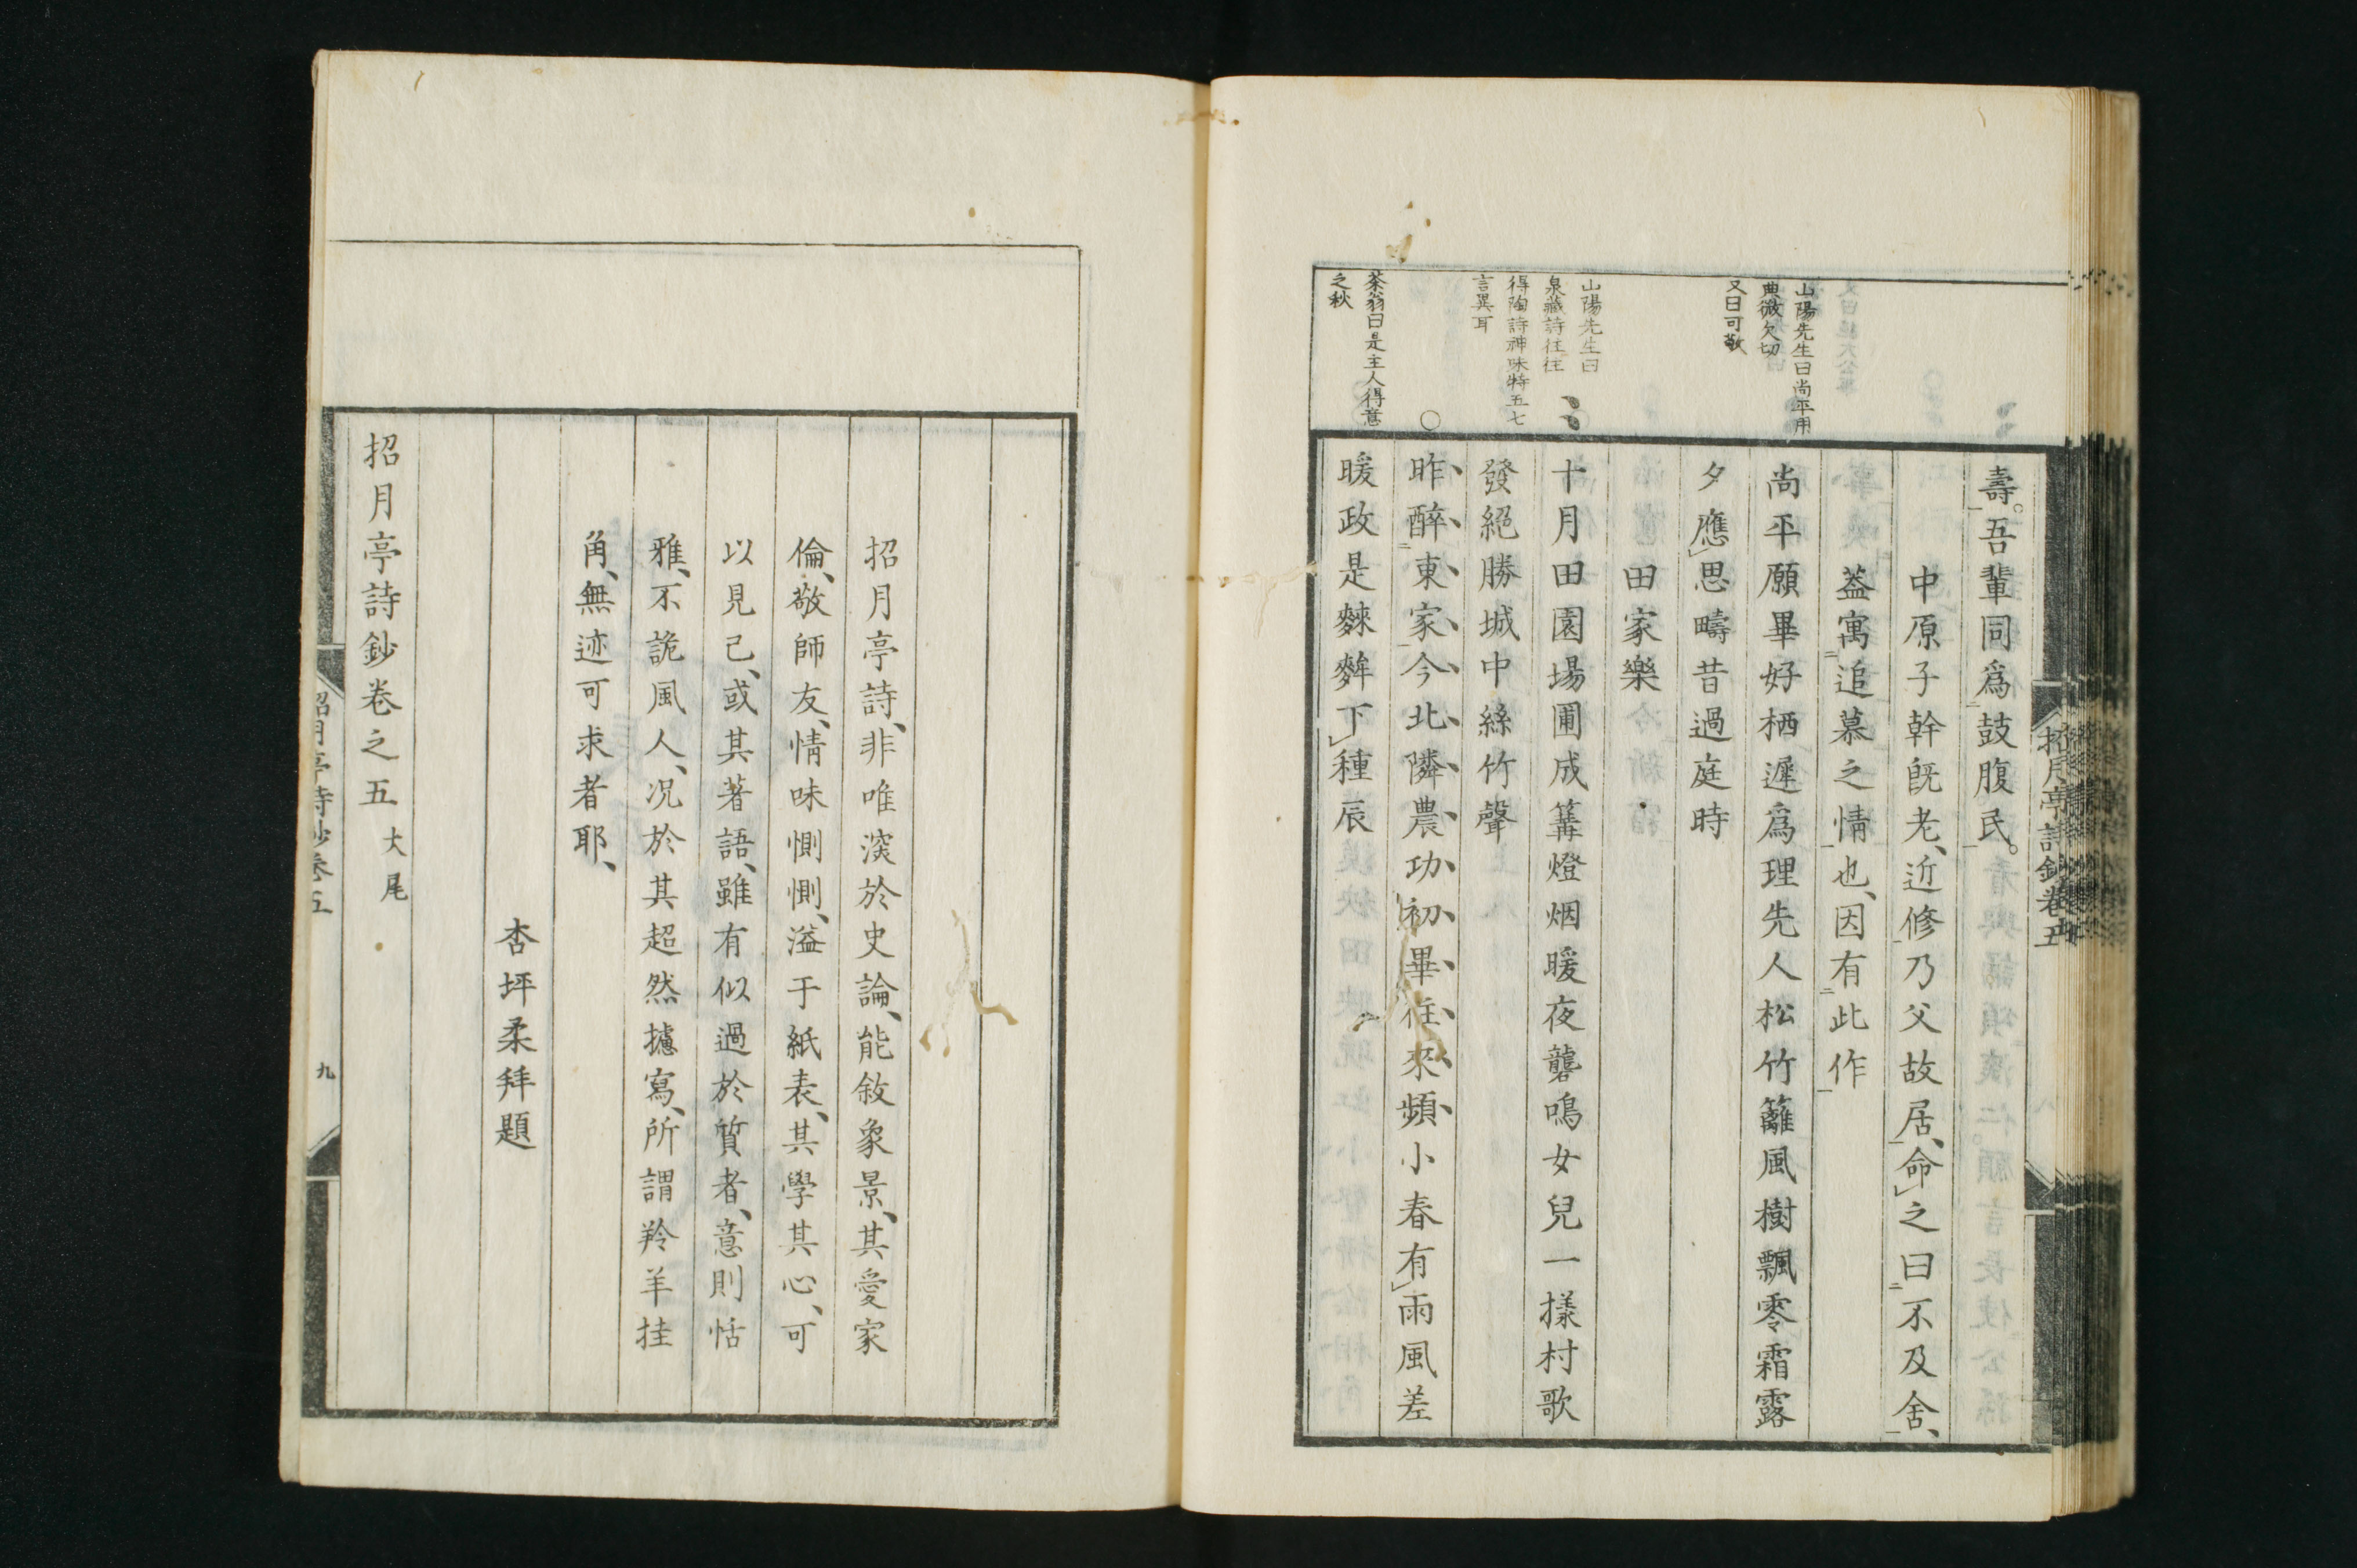 山陽先生曰尚平用
典微欠切
又曰可敬
山陽先生曰
泉藏詩往往
得陶詩神味特五七
言異耳
茶翁曰是主人得意
之秋
壽。吾輩同爲鼓腹民。
中原子幹旣老、近修乃父故居、命之曰不及舍、
葢寓追慕之情也、因有此作
尚平願畢好栖遲爲理先人松竹籬風樹飄零霜露
夕應思疇昔過庭時
田家樂
十月田園場圃成篝燈烟暖夜礱鳴女兒一㨾村歌
發絕勝城中絲竹聲
昨醉東家今北隣農功初畢往來頻小春有雨風差
暖政是麰下種辰
招月亭詩鈔卷五
招月亭詩、非唯深於史論、能敘象景、其愛家
倫、敬師友、情味惻惻、溢于紙表、其學其心、可
以見已、或其著語、雖有似過於質者、意則恬
雅、不詭風人、况於其超然攄寫、所謂羚羊挂
角、無迹可求者耶、
杏坪柔拜題
招月亭詩鈔卷之五 大尾
招月亭詩鈔卷五
九